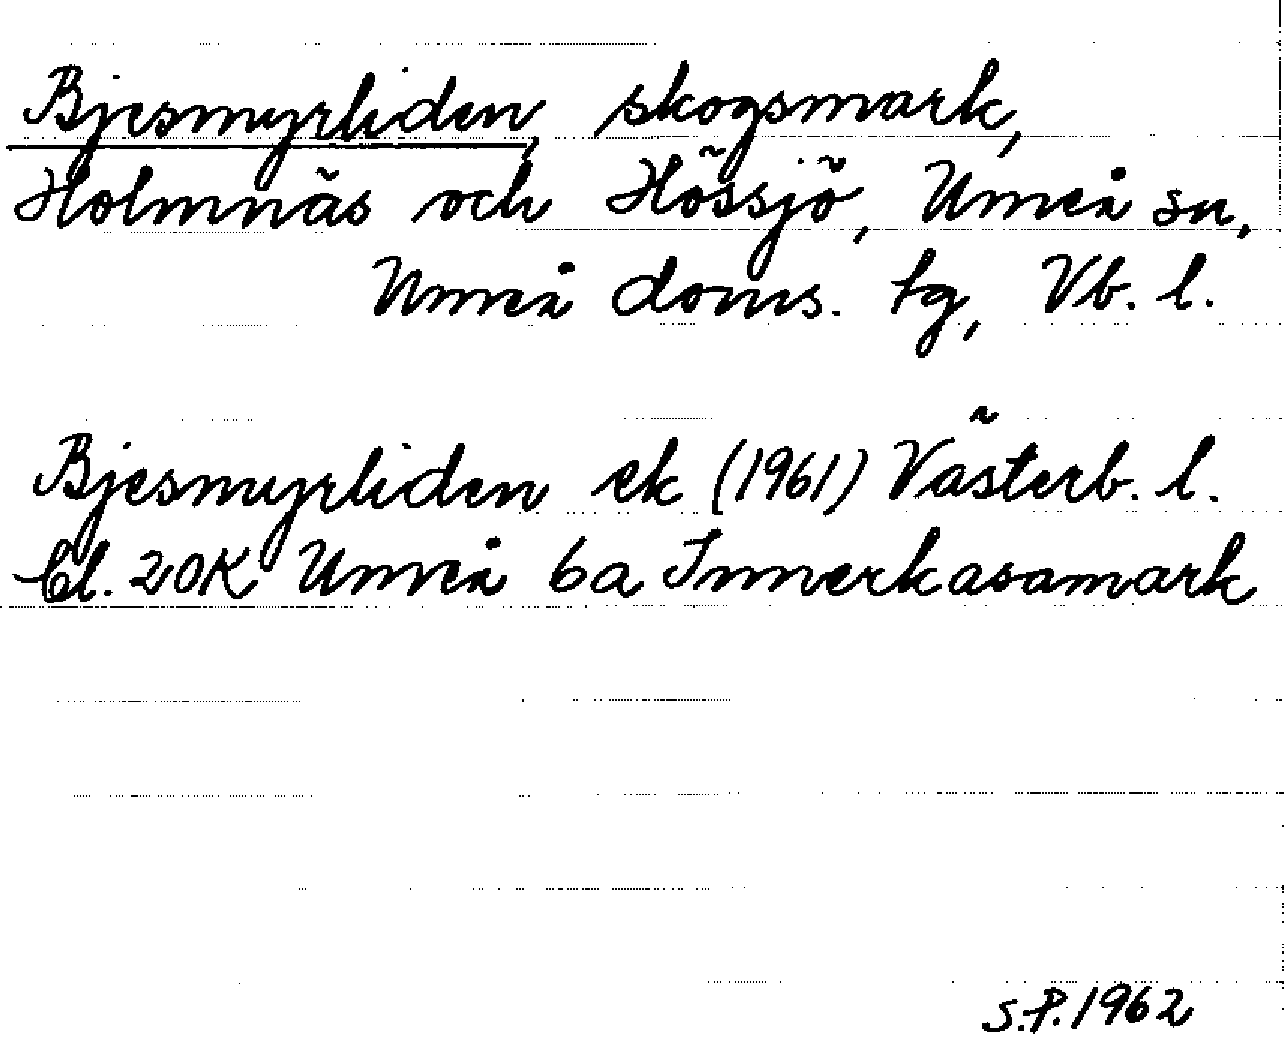 Bjesmyrliden, skogsmark,
Holmnäs och Hössjö, Umeå sn,
Umeå doms. tg, Vb. l.
Bjesmyrliden ek (1961) Västerb. l.
bl. 20K Umeå 6a Innerkasamark
S.P. 1962